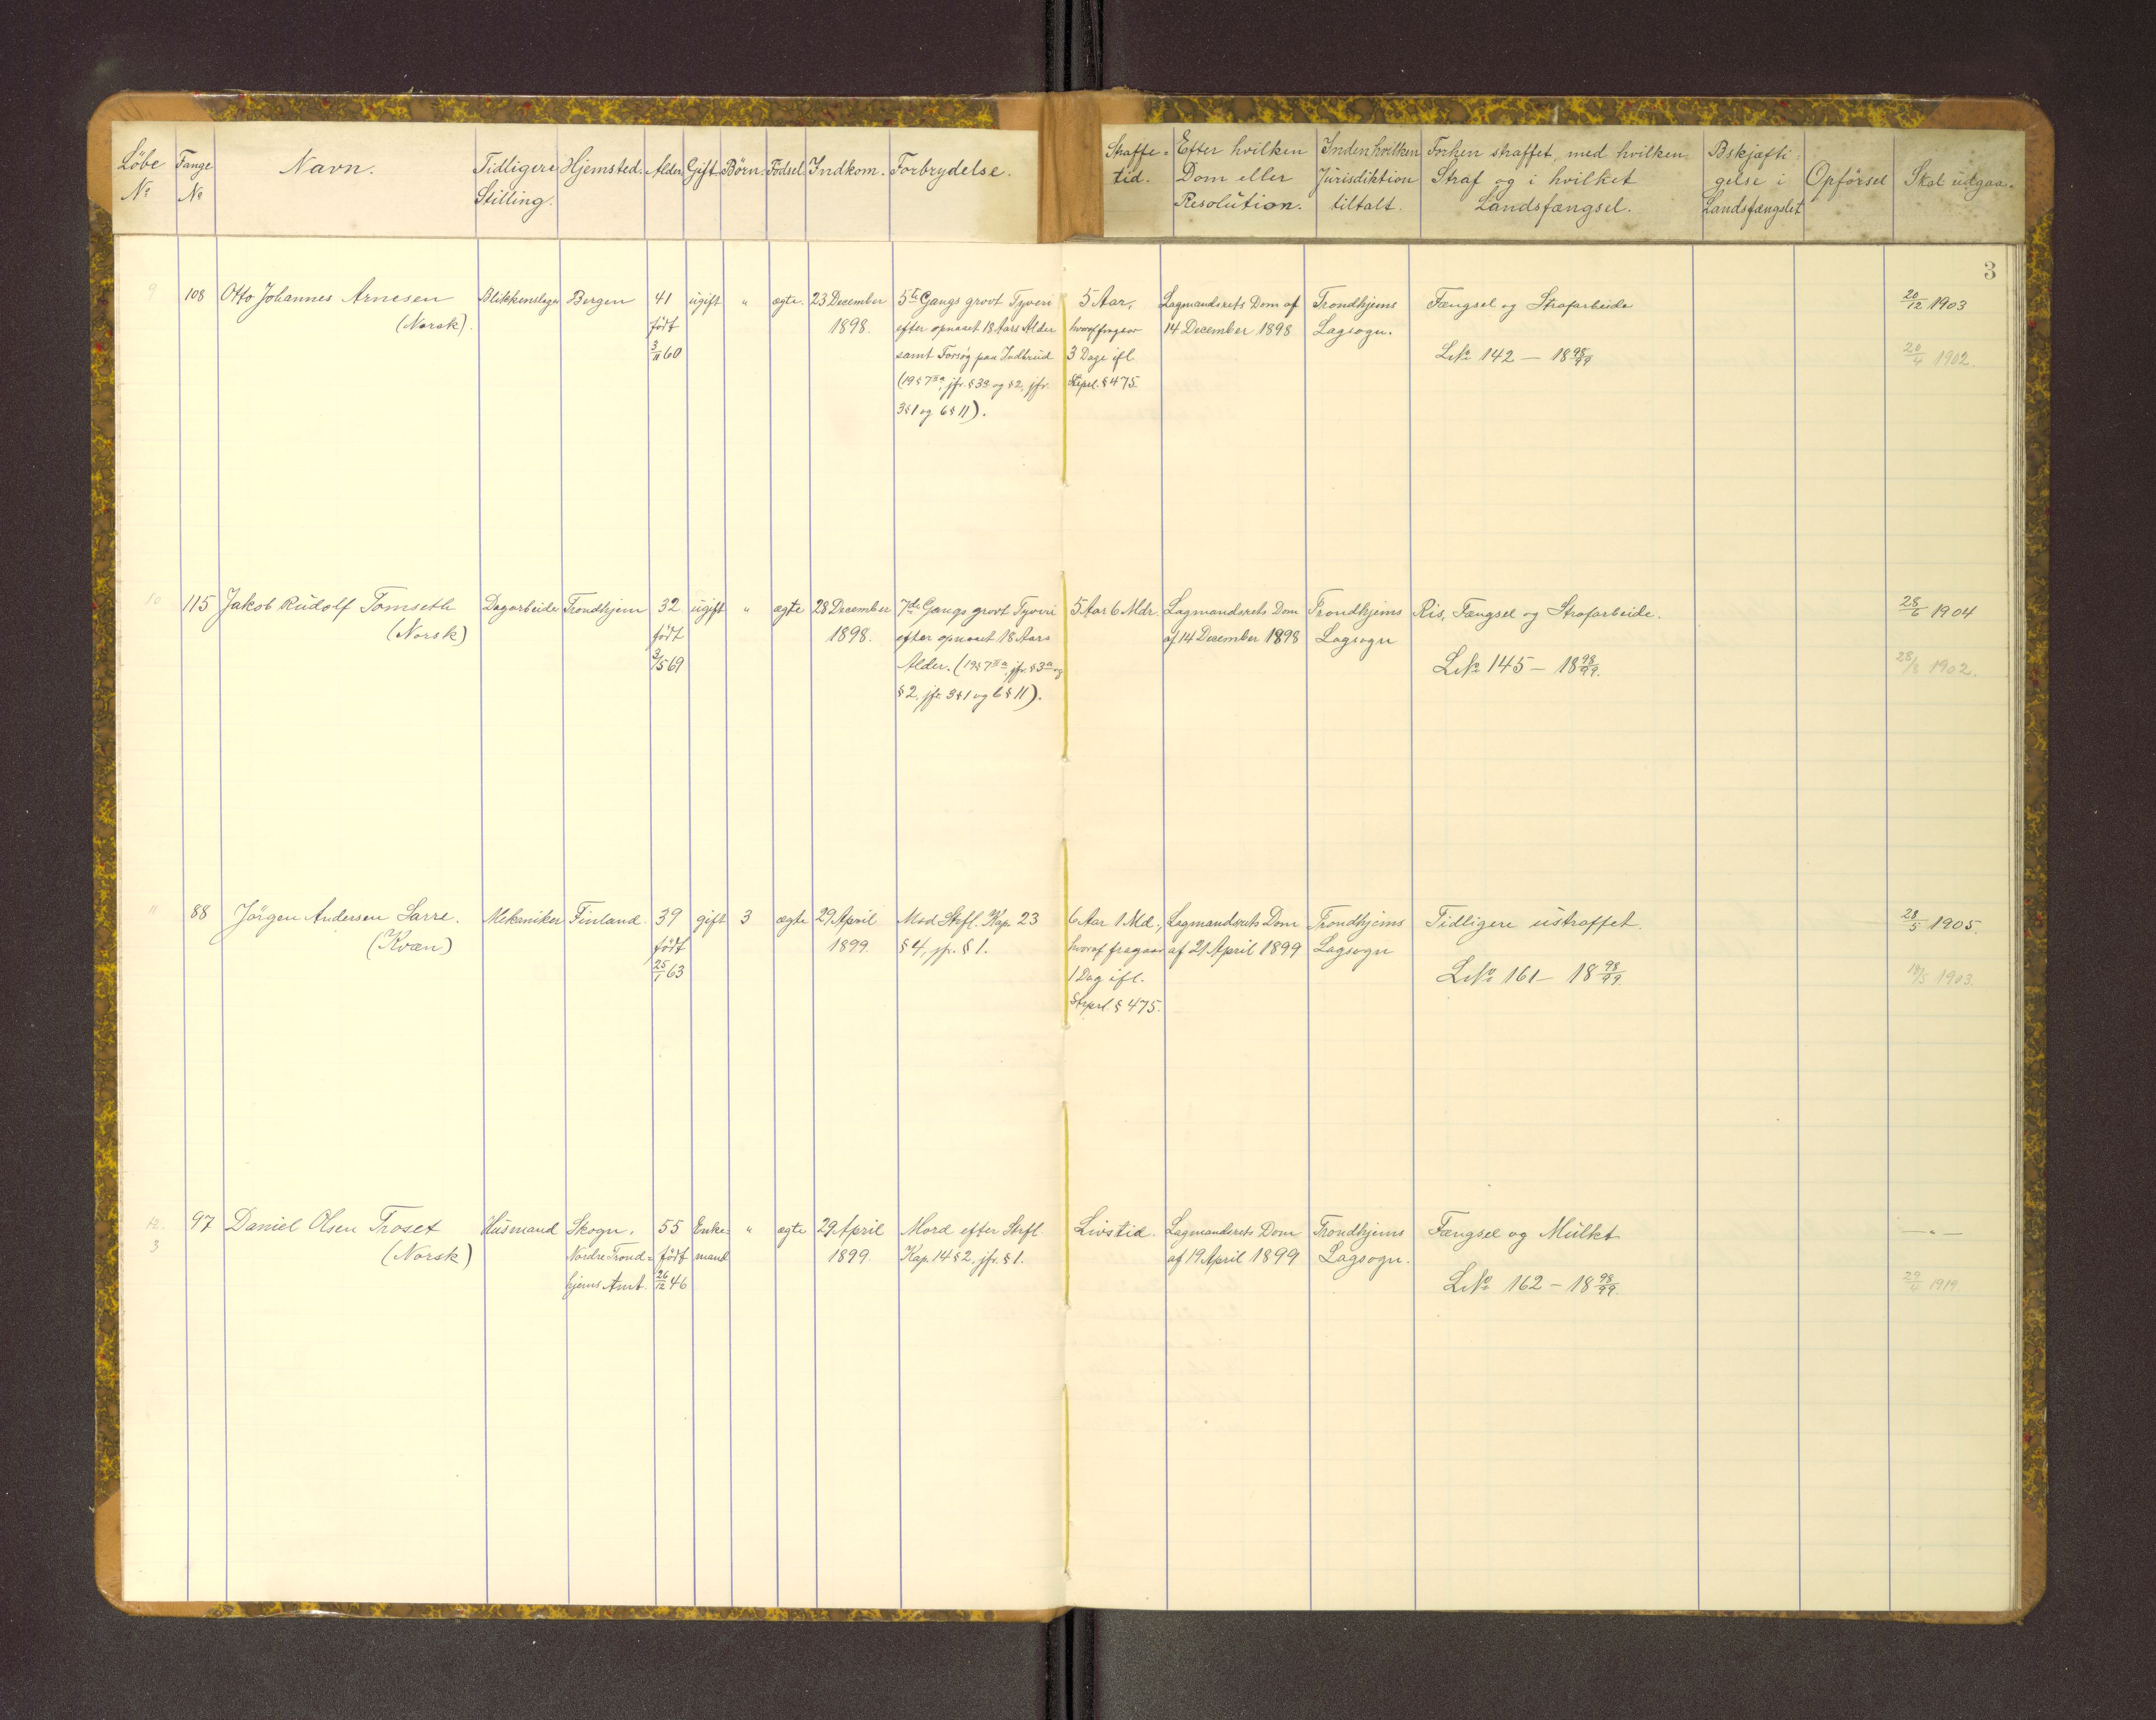 Löbe № | Fange № | Navn. | Tidligere Stilling. | Hjemsted. | Alder | Gift | Börn. | Födsel | Indkom. | Forbrydelse. | Straffe=tid. | Efter hvilken Dom eller Resolution. | Inden hvilken Jurisdiktion tiltalt. | Forhen straffet, med hvilken Straf og i hvilket Landsfængsel. | Bskjæfti=gelse i Landsfængslet | Opförsel | Skal udgaa.
3
9 | 108 | Otto Johannes Arnesen | Blikkenslager | Bergen | 41 | ugift | " | ægte. | 23 December | 5te Gangs grovt Tyveri | 5 Aar, | Lagmandsrets Dom af | Trondhjems | Fængsel og Strafarbeide | 20/12 1903
(Norsk). | født | 1898. | efter opnaaet 18 Aars Alder | 14 December 1898 | Lagsogn.
3/11 60 | samt Forsøg paa Indbrud | 3 Dage ifl. | L.№ 142 — 18 98/99 | 20/4 1902.
jfr. § 3a og § 2, jfr. | Strpcl. § 475.
3 § 1 og 6 § 11).
10 | 115 | Jakob Rudolf Tomseth | Dagarbeider | Trondhjem | 32 | ugift | " | ægte | 28 December | 7de Gangs grovt Tyveri | 5 Aar 6 Mdr. | Lagmandsrets Dom | Trondhjems | Ris, Fængsel og Strafarbeide. | 28/6 1904
(Norsk) | født | 1898. | efter opnaaet 18 Aars | af 14 December 1898 | Lagsogn
3/5 69 | Alder. | jfr. § 3a og | L.№ 145 — 18 98/99. | 1902.
§ 2, jfr. 3 § 1 og 6 § 11).
11 | 88 | Jörgen Andersen Sarre. | Mekaniker | Finland. | 39 | gift | 3 | ægte | 29 April | Mod Strfl. Kap. 23 | 6 Aar 1 Md., | Lagmandsrets Dom | Trondhjems | Tidligere ustraffet. | 28/5 1905.
(Kvæn) | født | 1899. | § 4, jfr. § 1. | hvoraf fragaar | af 21 April 1899 | Lagsogn
25/1 63 | 1 Dag ifl. | L.№ 161 — 18 98/99. | 1903.
Strpcl. § 475.
12. | 97 | Daniel Olsen Troset | Husmand | Skogn. | 55 | Enke= | " | ægte | 29 April | Mord efter Strfl. | Livstid. | Lagmandsrets Dom | Trondhjems | Fængsel og Mulkt | — " —
3 | (Norsk) | Nordre Trond= | født | mand | 1899. | Kap. 14 § 2, jfr. § 1. | af 19 April 1899 | Lagsogn.
hjems Amt. | 26/12 46 | L.№ 162 — 18 98/99. | 29/4 1919